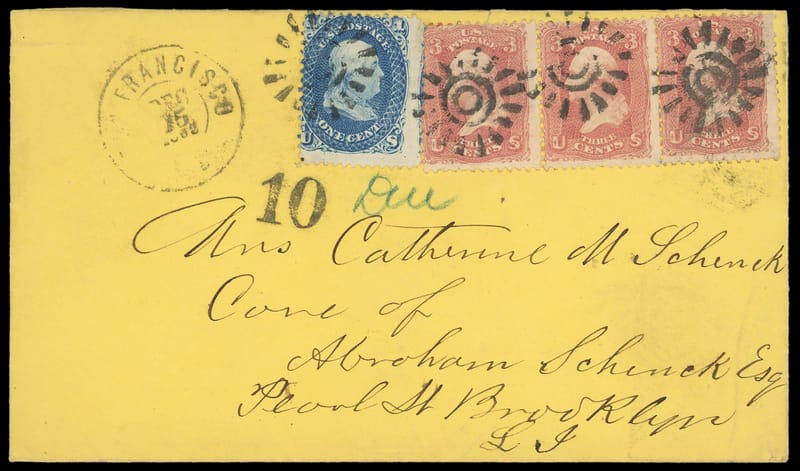 FRANCISCO
DEC
15
U.S. POSTAGE
ONE CENT
U S
3 U.S. 3
POSTAGE
THREE
U CENTS S
3 U.S. 3
POSTAGE
THREE
U CENTS S
3 3
U CENTS S
10 Due
Mrs Catherine M Schenck
Care of
Abraham Schenck Esq
Pearl St Brooklyn
L I